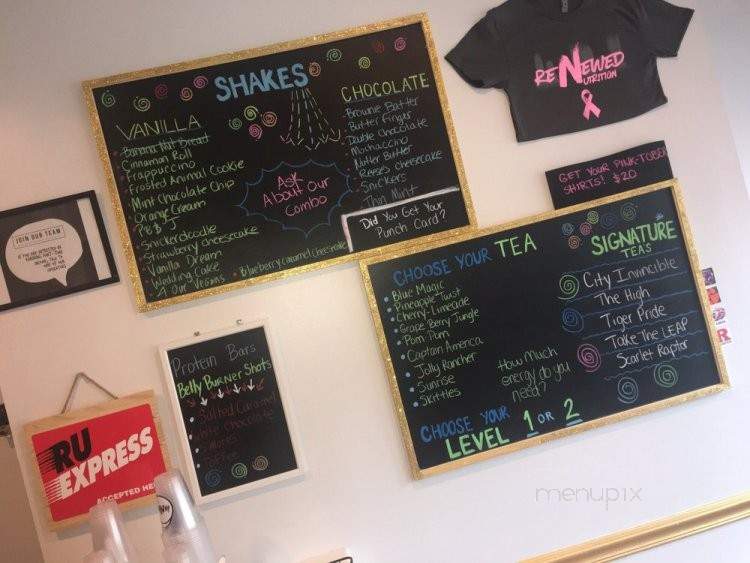 SHAKES
VANILLA
Banana Nut Bread
Cinnamon Roll
Frappuccino
Frosted Animal Cookie
Mint Chocolate Chip
Orange Cream
PB & J
Snickerdoodle
Strawberry cheesecake
Vanilla Dream
Wedding Cake
Blueberry caramel cheesecake
Ask
About Our
Combo
CHOCOLATE
Brownie Batter
Butter Finger
Double Chocolate
Mochaccino
Nutter Butter
Reeses cheesecake
Snickers
Thin Mint
Did You Get Your
Punch Card?
RENEWED
NUTRITION
GET YOUR PINK-TOBER
SHIRTS! $20
CHOOSE YOUR TEA
Blue Magic
Pineapple-Twist
Cherry-Limeade
Grape Berry Jungle
Pom Pom
Captain America
Jolly Rancher
Sunrise
Skittles
How Much
energy do you
need?
CHOOSE YOUR
LEVEL 1 OR 2
SIGNATURE
TEAS
City Invincible
The High
Tiger Pride
Take The LEAP
Scarlet Raptor
JOIN OUR TEAM
Protein Bars
Belly Burner Shots
Salted Caramel
White Chocolate
S'mores
Coffee
RU
EXPRESS
ACCEPTED HE
menupix